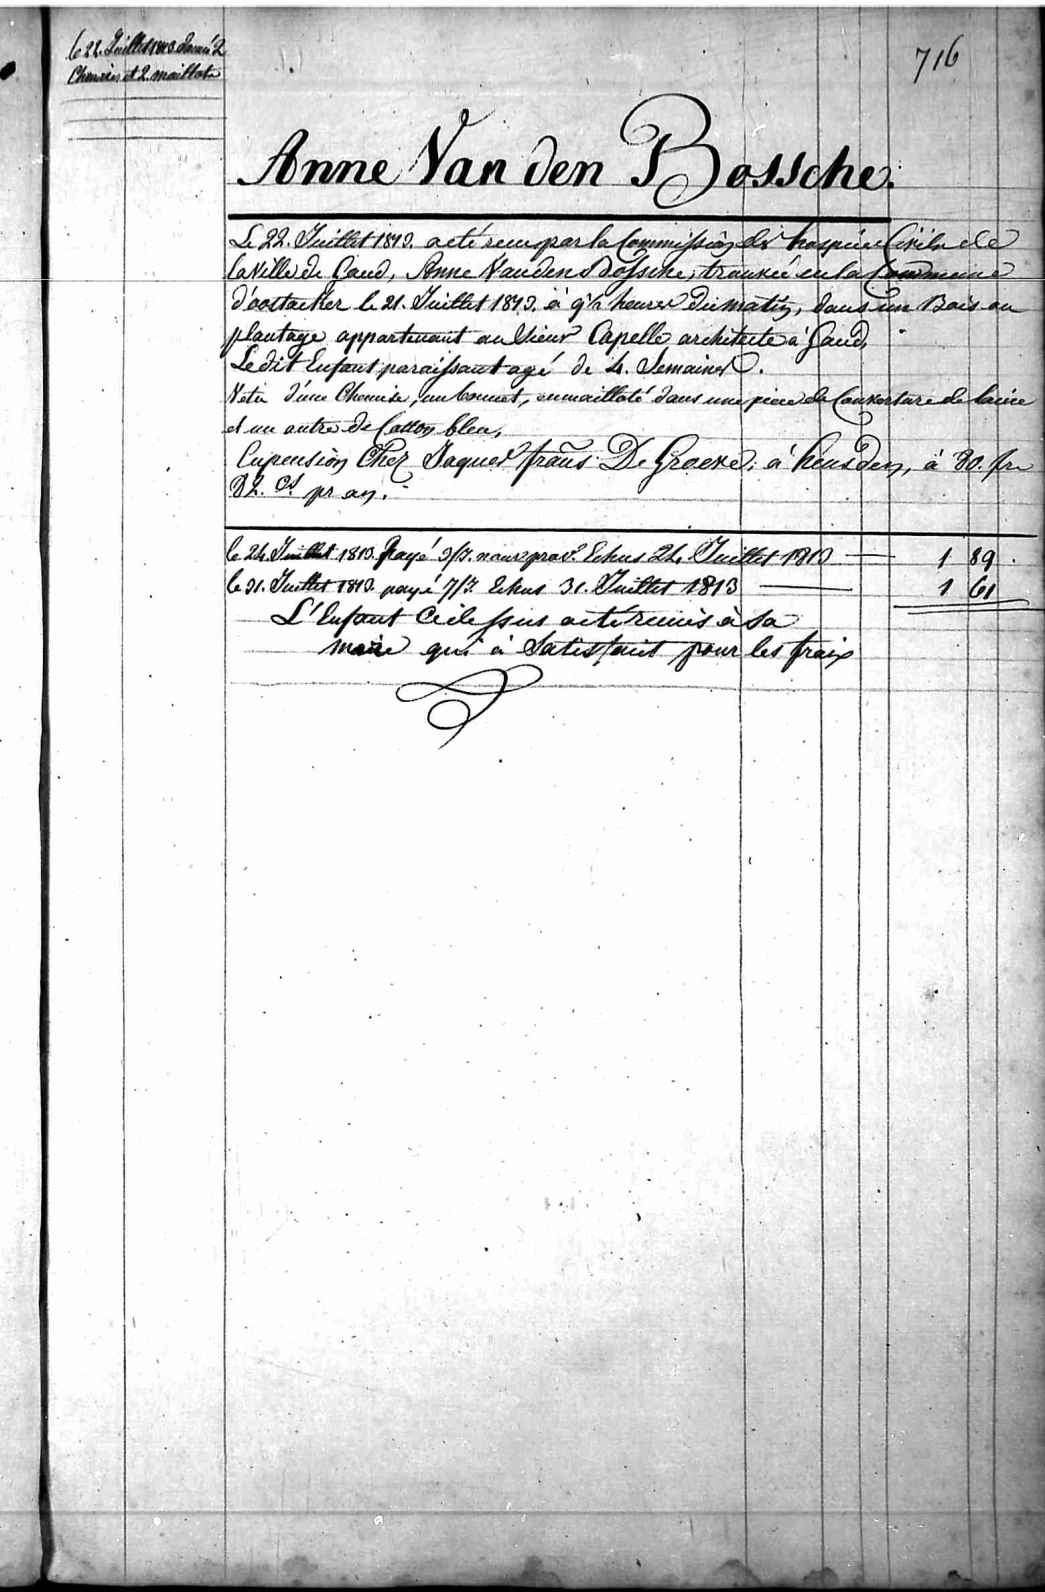 le 22. Juillet 1813. donné 2
Chemises et 2. maillots
716
Anne Van den Bossche.
Le 22. Juillet 1813. a eté recu par la Commission des hospices Civils de
la Ville de Gand, Anne Van den Bossche, trouvée en la Commune
d'oostacker le 21. Juillet 1813. à 9½ heures du matin, dans un Bois ou
plantage appartenant au Sieur Capelle architecte à Gand,
Le dit Enfant paraissant agé de 4. Semaines.
Vetu d'une Chemise, un bonnet, enmailloté dans une piece de Couverture de laine
et un autre de Cotton bleu,
En pension Chez Jaques frans De Groeve; à heusden, à 80. fr.
32. Cs. pr an.
le 24. Juillet 1813. payé 3/J. Echus 24. Juillet 1813 1 89
le 31. Juillet 1813. payé 7/J. Echus 31. Juillet 1813 1 61
L'Enfant Cidessus a eté remis à sa
mère qui à Satisfait pour les fraix